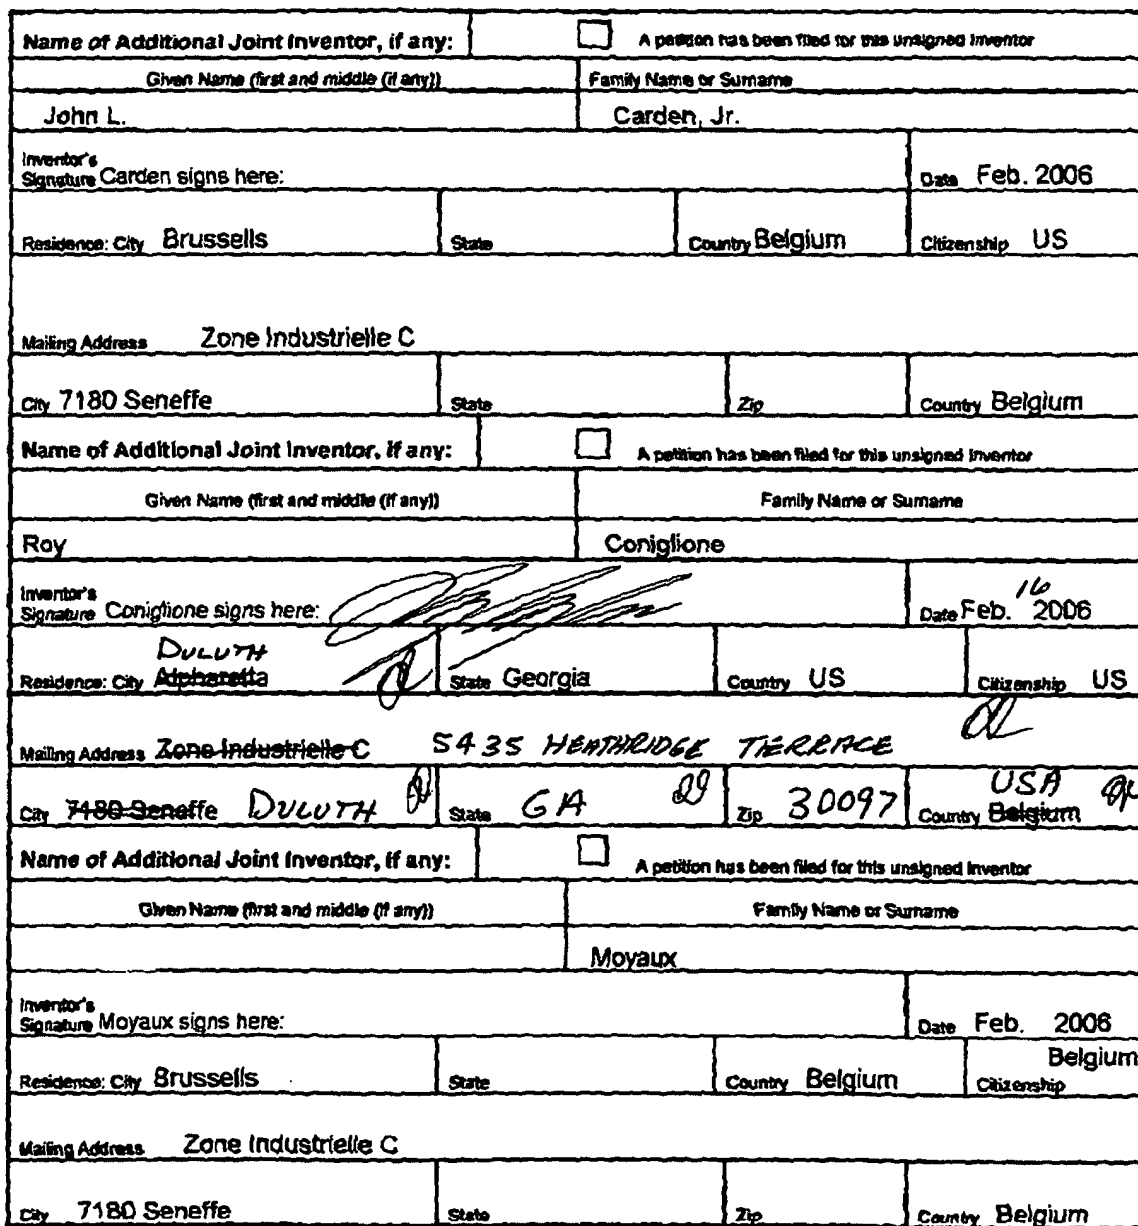 Name of Additional Joint Inventor, if any: A petition has been filed for this unsigned inventor
Given Name (first and middle (if any)) Family Name or Surname
John L. Carden, Jr.
Inventor's
Signature Carden signs here: Date Feb. 2006
Residence: City Brussells State Country Belgium Citizenship US
Mailing Address Zone Industrielle C
City 7180 Seneffe State Zip Country Belgium
Name of Additional Joint Inventor, if any: A petition has been filed for this unsigned inventor
Given Name (first and middle (if any)) Family Name or Surname
Roy Coniglione
Inventor's 16
Signature Coniglione signs here: Date Feb. 2006
DULUTH
Residence: City Alpharetta State Georgia Country US Citizenship US
Mailing Address Zone Industrielle C 5435 HEATHRIDGE TERRACE
USA
City 7180 Seneffe DULUTH State GA Zip 30097 Country Belgium
Name of Additional Joint Inventor, if any: A petition has been filed for this unsigned inventor
Given Name (first and middle (if any)) Family Name or Surname
Moyaux
Inventor's
Signature Moyaux signs here: Date Feb. 2006
Belgium
Residence: City Brussells State Country Belgium Citizenship
Mailing Address Zone Industrielle C
City 7180 Seneffe State Zip Country Belgium